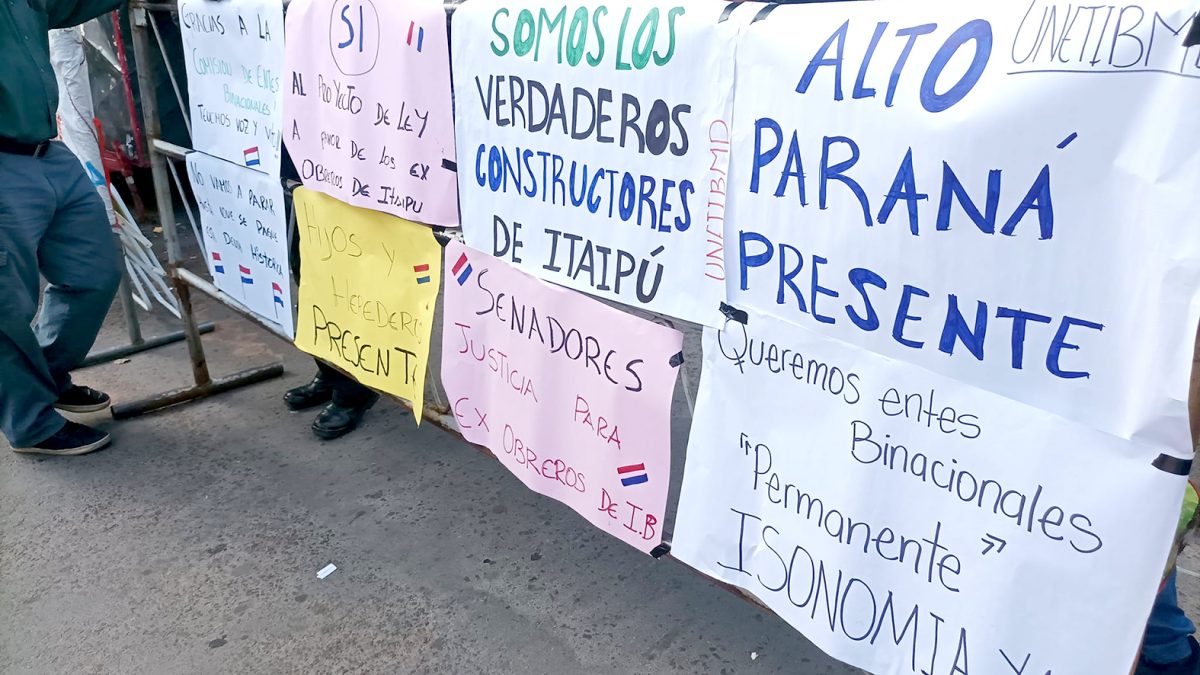 GRACIAS A LA
COMISION DE ENTES
BINACIONALES!
NO VAMOS A PARAR
HASTA QUE SE PAGUE
ESTA DEUDA HISTORICA
SI
AL PROYECTO DE LEY
A FAVOR DE LOS EX
OBREROS DE ITAIPU
HIJOS Y
HEREDEROS
PRESENTE
SOMOS LOS
VERDADEROS
CONSTRUCTORES
DE ITAIPÚ
UNETIBMD
SENADORES
JUSTICIA PARA
EX OBREROS DE I.B
UNETIBMD
ALTO
PARANÁ
PRESENTE
Queremos entes
Binacionales
"Permanente"
ISONOMIA YA